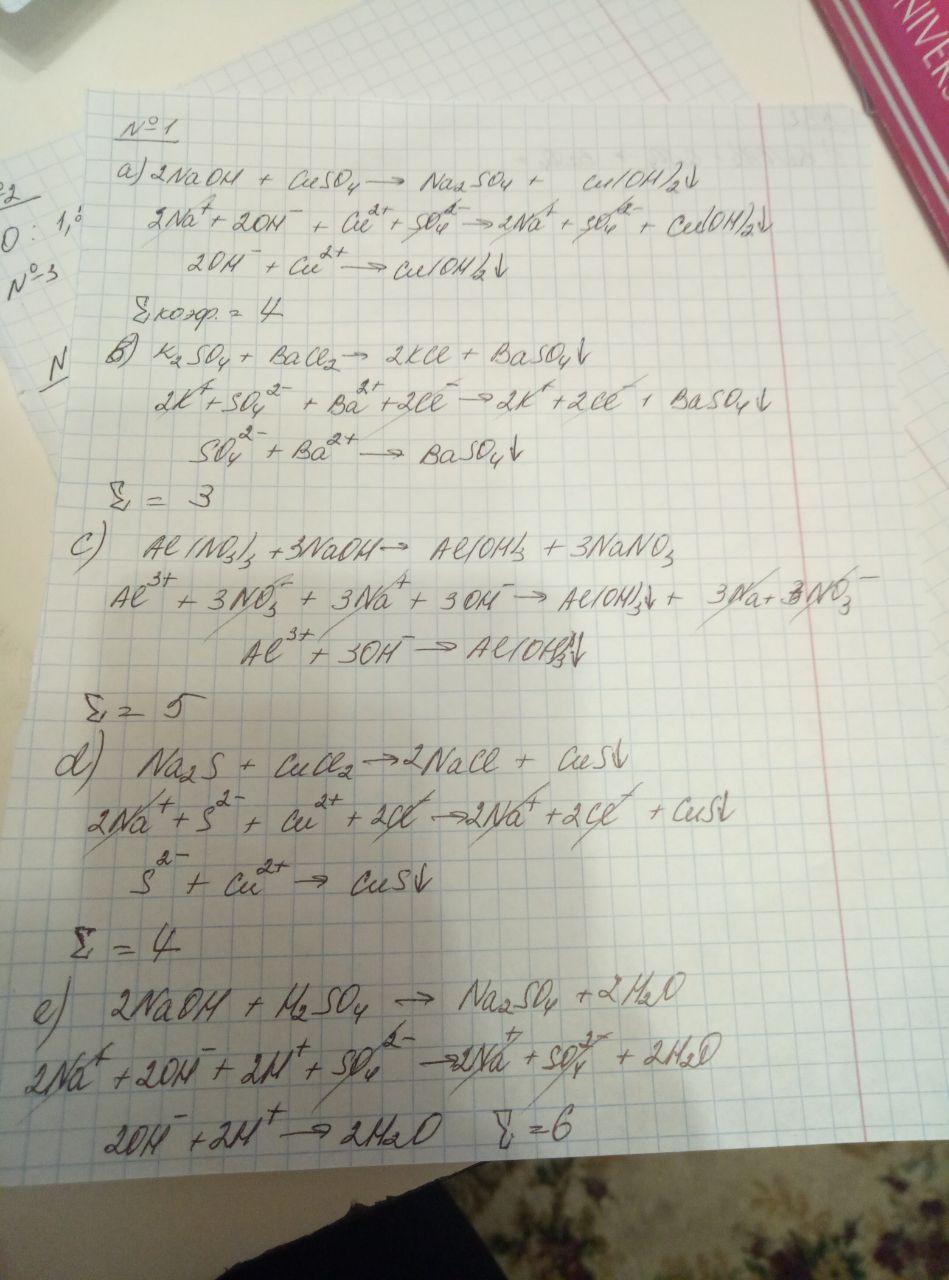 NIVERS
№2
O : 1,
№3
N
№1
a) 2NaOH + CuSO₄ → Na₂SO₄ + Cu(OH)₂↓
2Na⁺ + 2OH⁻ + Cu²⁺ + SO₄²⁻ → 2Na⁺ + SO₄²⁻ + Cu(OH)₂↓
2OH⁻ + Cu²⁺ → Cu(OH)₂↓
Σ коэф. = 4
b) K₂SO₄ + BaCl₂ → 2KCl + BaSO₄↓
2K⁺ + SO₄²⁻ + Ba²⁺ + 2Cl⁻ → 2K⁺ + 2Cl⁻ + BaSO₄↓
SO₄²⁻ + Ba²⁺ → BaSO₄↓
Σ = 3
c) Al(NO₃)₃ + 3NaOH → Al(OH)₃ + 3NaNO₃
Al³⁺ + 3NO₃⁻ + 3Na⁺ + 3OH⁻ → Al(OH)₃↓ + 3Na + 3NO₃⁻
Al³⁺ + 3OH⁻ → Al(OH)₃↓
Σ = 5
d) Na₂S + CuCl₂ → 2NaCl + CuS↓
2Na⁺ + S²⁻ + Cu²⁺ + 2Cl⁻ → 2Na⁺ + 2Cl⁻ + CuS↓
S²⁻ + Cu²⁺ → CuS↓
Σ = 4
e) 2NaOH + H₂SO₄ → Na₂SO₄ + 2H₂O
2Na⁺ + 2OH⁻ + 2H⁺ + SO₄²⁻ → 2Na⁺ + SO₄²⁻ + 2H₂O
2OH⁻ + 2H⁺ → 2H₂O Σ = 6